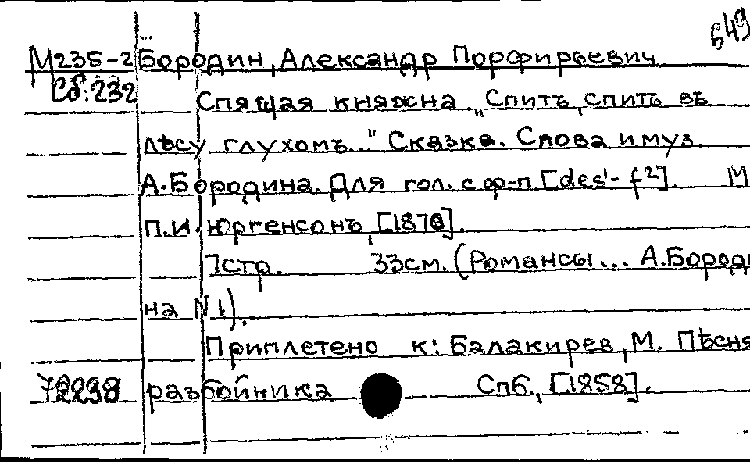 649
М235-2 Бородин, Александр Порфирьевич
Сб.232
Спящая княжна. „Спитъ, спитъ въ
лѣсу глухомъ.." Сказка. Слова и муз.
А.Бородина. Для гол. с ф-п [des'- f²]. М
П.И. Юргенсонъ, [1870].
7стр. 33см. (Романсы... А.Бороди
на №1).
Приплетено к: Балакирев, М. Пѣсня
72238 разбойника Спб., [1858].